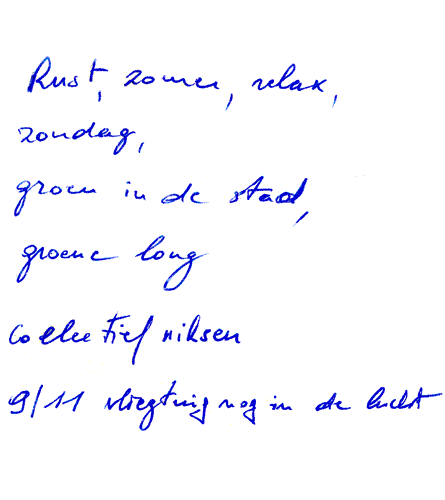 Rust, zomer, relax,
zondag,
groen in de stad,
groene long
collectief niksen
9/11 vliegtuig nog in de lucht